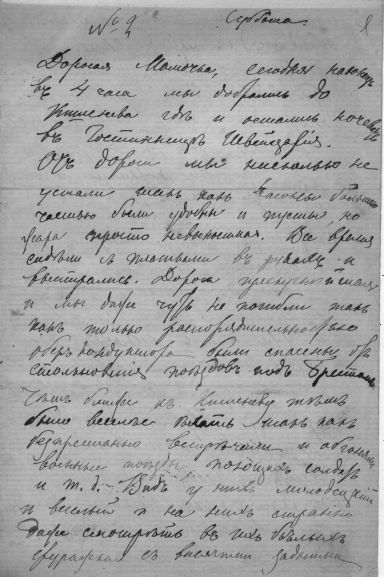 № 2 Суббота. 1
Дорогая Мамочка, сегодня наконецъ
въ 4 часа мы добрались до
Кишенева гдѣ и остались ночевать
въ Гостинницѣ Швейцарія.
Отъ дороги мы нисколько не
устали такъ какъ вагоны большею
частью были удобны и пусты, но
жара просто невыносимая. Все время
сидѣли съ платками въ рукахъ и
вытирались. Дорога
и мы даже чуть не погибли такъ
какъ только распорядительностью
оберъ кондуктора были спасены отъ
столкновенія поѣздовъ подъ
Чѣмъ ближе къ Кишеневу тѣмъ
было веселѣе ѣхать такъ какъ
безпрестанно встрѣчали и обгоняли
военные поѣзды, солдатъ
и т. д. Видъ у нихъ молодецкій
и веселый и на нихъ странно
даже смотрѣть въ ихъ бѣлыхъ
фуражкахъ съ висячими задними